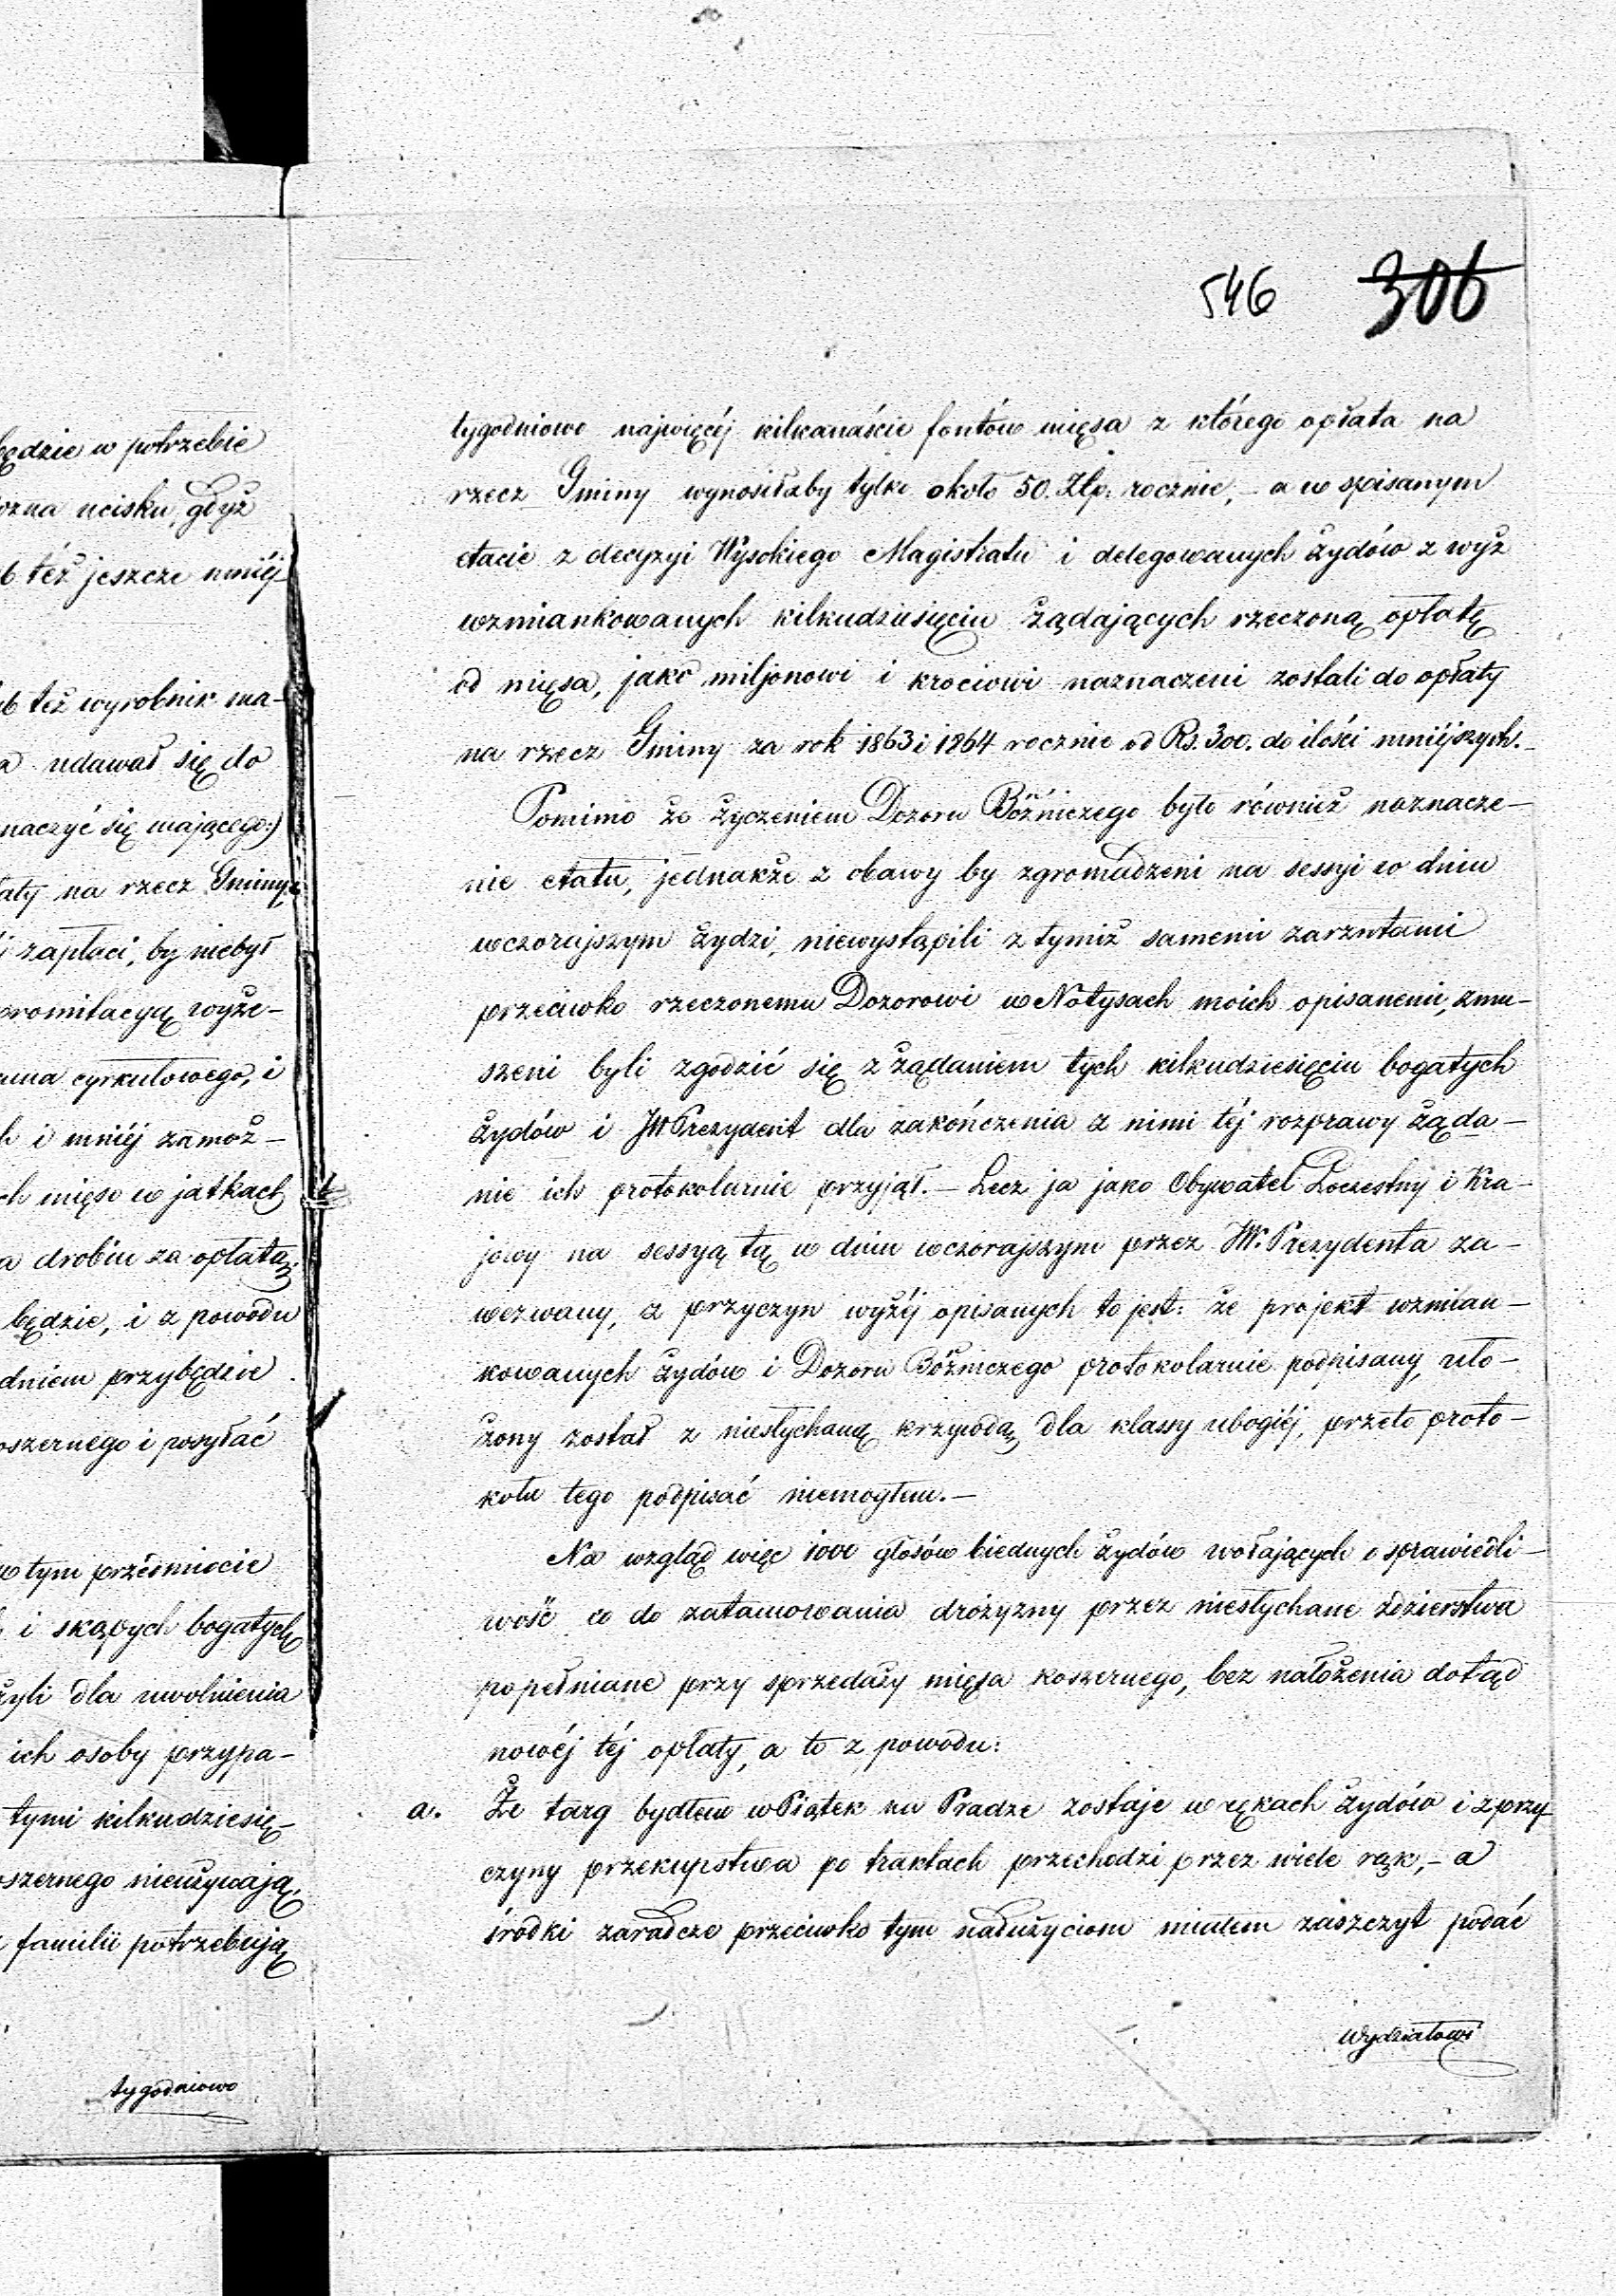 będzie w potrzebie
ucisku, gdyż
też jeszcze mniéj
też wyrobnik ma-
udawał się do
naczyć się mającego:)
na rzecz Gminy,
zapłaci, by niebył
wyże-
cyrkułowego, i
i mniéj zamoż-
mięso w jatkach
drobiu za opłatą
będzie, i z powodu
przybędzie
i posyłać
w tym przedmiocie
i skąpych bogatych
dla uwolnienia
ich osoby przypa-
tymi kilkudziesię-
nieużywają,
familii potrzebują
tygodniowo
546 306
tygodniowo najwięcéj kilkanaście fontów mięsa z którego opłata na
rzecz Gminy wynosiłaby tylko około 50. Złp. rocznie, – a w spisanym
etacie z decyzyi Wysokiego Magistratu i delegowanych żydów z wyż
wzmiankowanych kilkudziesięciu żądających rzeczoną opłatę
od mięsa, jako miljonowi i krociowi naznaczeni zostali do opłaty
na rzecz Gminy za rok 1863 i 1864 rocznie od Rs. 300. do ilości mniéjszych. –
Pomimo że życzeniem Dozoru Bóżniczego było również naznacze-
nie etatu, jednakże z obawy by zgromadzeni na sessyi w dniu
wczorajszym żydzi, niewystąpili z tymiż samemi zarzutami
przeciwko rzeczonemu Dozorowi w Notysach moich opisanemi, zmu-
szeni byli zgodzić się z żądaniem tych kilkudziesięciu bogatych
żydów i JW Prezydent dla zakończenia z nimi téj rozprawy żąda-
nie ich protokolarnie przyjął. – Lecz ja jako Obywatel Poczestny i Kra-
jowy na sessyą tą w dniu wczorajszym przez JW. Prezydenta za-
wezwany, z przyczyn wyżéj opisanych to jest: że projekt wzmian-
kowanych żydów i Dozoru Bóżniczego protokolarnie podpisany, uło-
żony został z niesłychaną krzywdą dla klassy ubogiéj, przeto proto-
kołu tego podpisać niemogłem. –
Na wzgląd więc 1000 głosów biednych żydów wołających o sprawiedli-
wość co do zatamowania drożyzny przez niesłychane zdzierstwa
popełniane przy sprzedaży mięsa koszernego, bez nałożenia dotąd
nowéj téj opłaty, a to z powodu:
a. Że targ bydłem w Piątek na Pradze zostaje w rękach żydów i z przy-
czyny przekupstwa po traktach przechodzi przez wiele rąk, – a
środki zaradcze przeciwko tym nadużyciom miałem zaszczyt podać
Wydziałowi